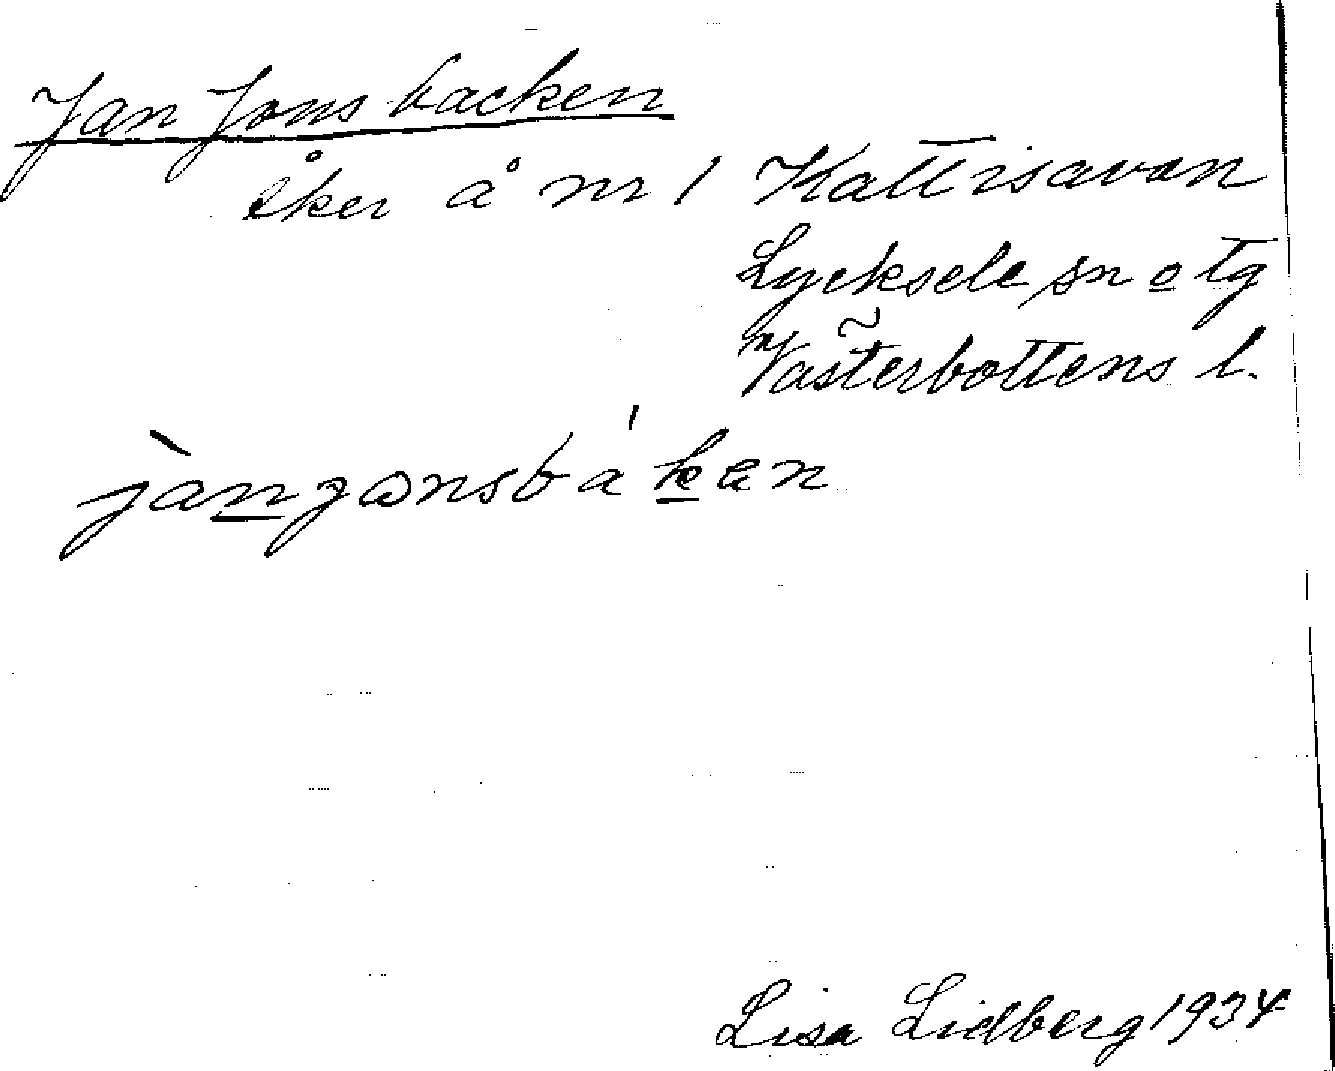 Jan Jons backen
åker å nr 1 Kattisavan
Lycksele sn o tg
Västerbottens l.
jànjonsbákan
Lisa Lidberg 1934